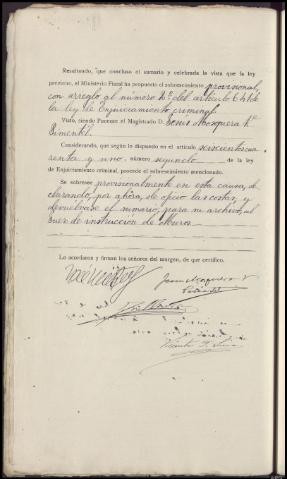 Resultando, que conclusa el sumario y celebrada la vista que la ley
previene, el Ministerio Fiscal ha propuesto el sobreseimiento provisional,
con arreglo al número 2º del artículo 641 de
la ley de Enjuiciamiento criminal
Visto, siendo Ponente el Magistrado D. Mosquera
Pimentel.
Considerando, que según lo dispuesto en el artículo seiscientos cua
renta y uno, número segundo de la ley
de Enjuiciamiento criminal, procede el sobreseimiento mencionado.
Se sobresee provisionalmente en esta causa, de
clarando, por ahora, de oficio las costas, y
devuélvase el sumario, para su archivo, al
Juez de instrucción de Muros
Lo acordaron y firman los señores del margen, de que certifico.